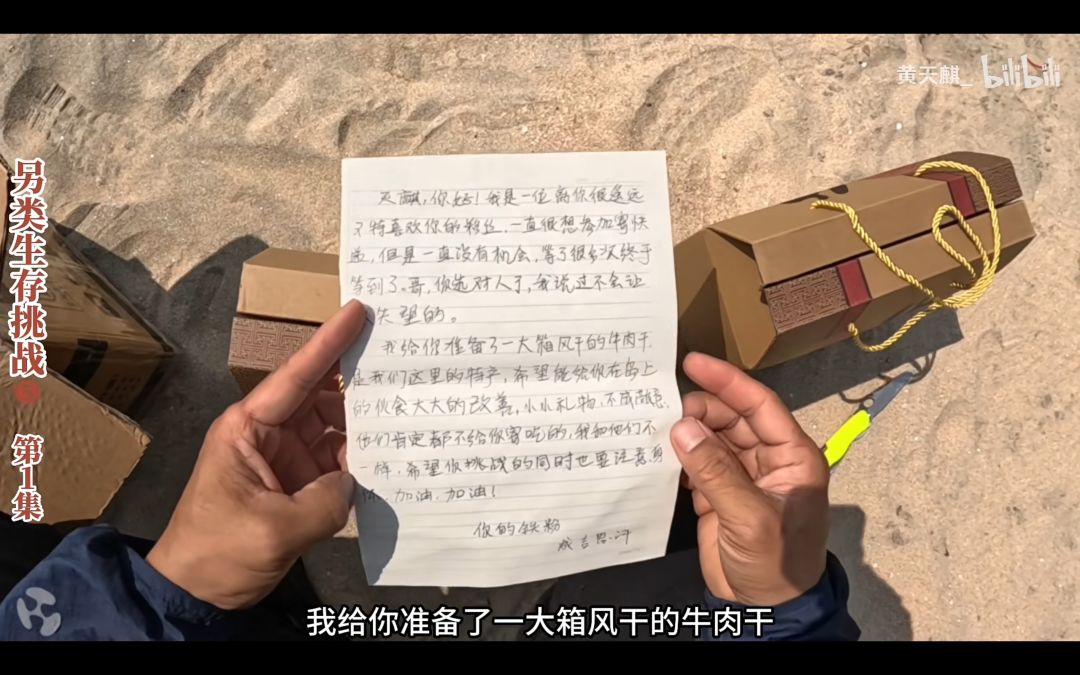 黄天麒_ bilibili
另类生存挑战 第1集
天麒,你好!我是一位离你很遥远
特喜欢你的粉丝,一直很想参加寄快
递,但是一直没有机会,等了很多次终于
等到了。哥,你选对人了,我说过不会让
失望的。
我给你准备了一大箱风干的牛肉干,
是我们这里的特产,希望能给你在岛上
的伙食大大的改善,小小礼物,不成敬意,
他们肯定都不给你寄吃的,我和他们不
一样,希望你挑战的同时也要注意身
体,加油,加油!
你的铁粉
成吉思汗
我给你准备了一大箱风干的牛肉干